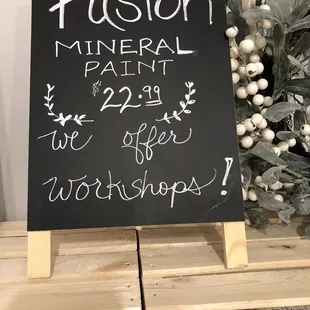 Fusion
MINERAL
PAINT
$22.99
we offer
workshops!